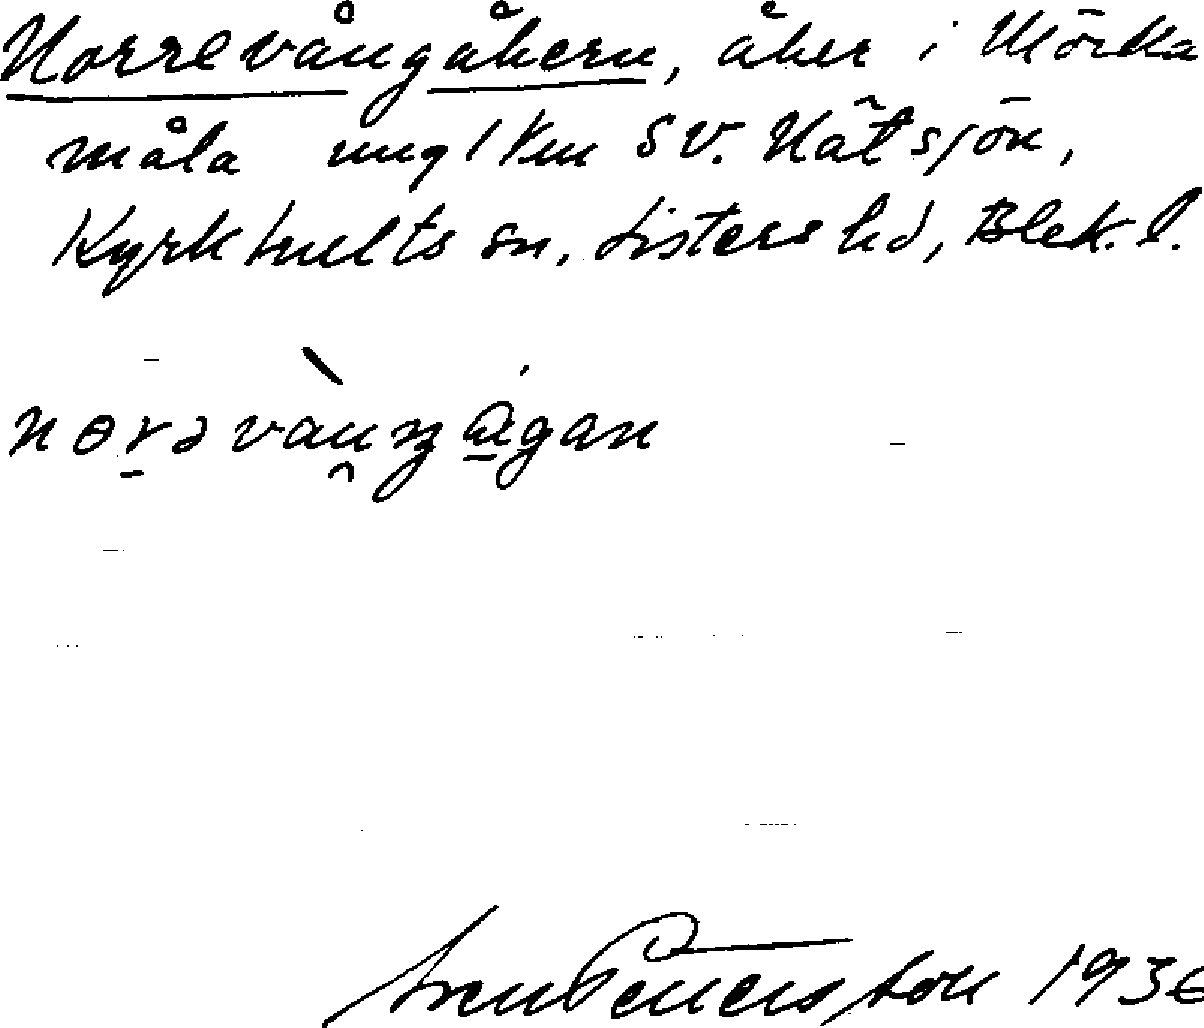 Norrevångåkern, åker i Mörka
måla ung 1 km SV. Nätsjön,
Kyrkhults sn, Listers hd, Blek. l.
nɵrəvàuŋågan
Sven Benson 1936